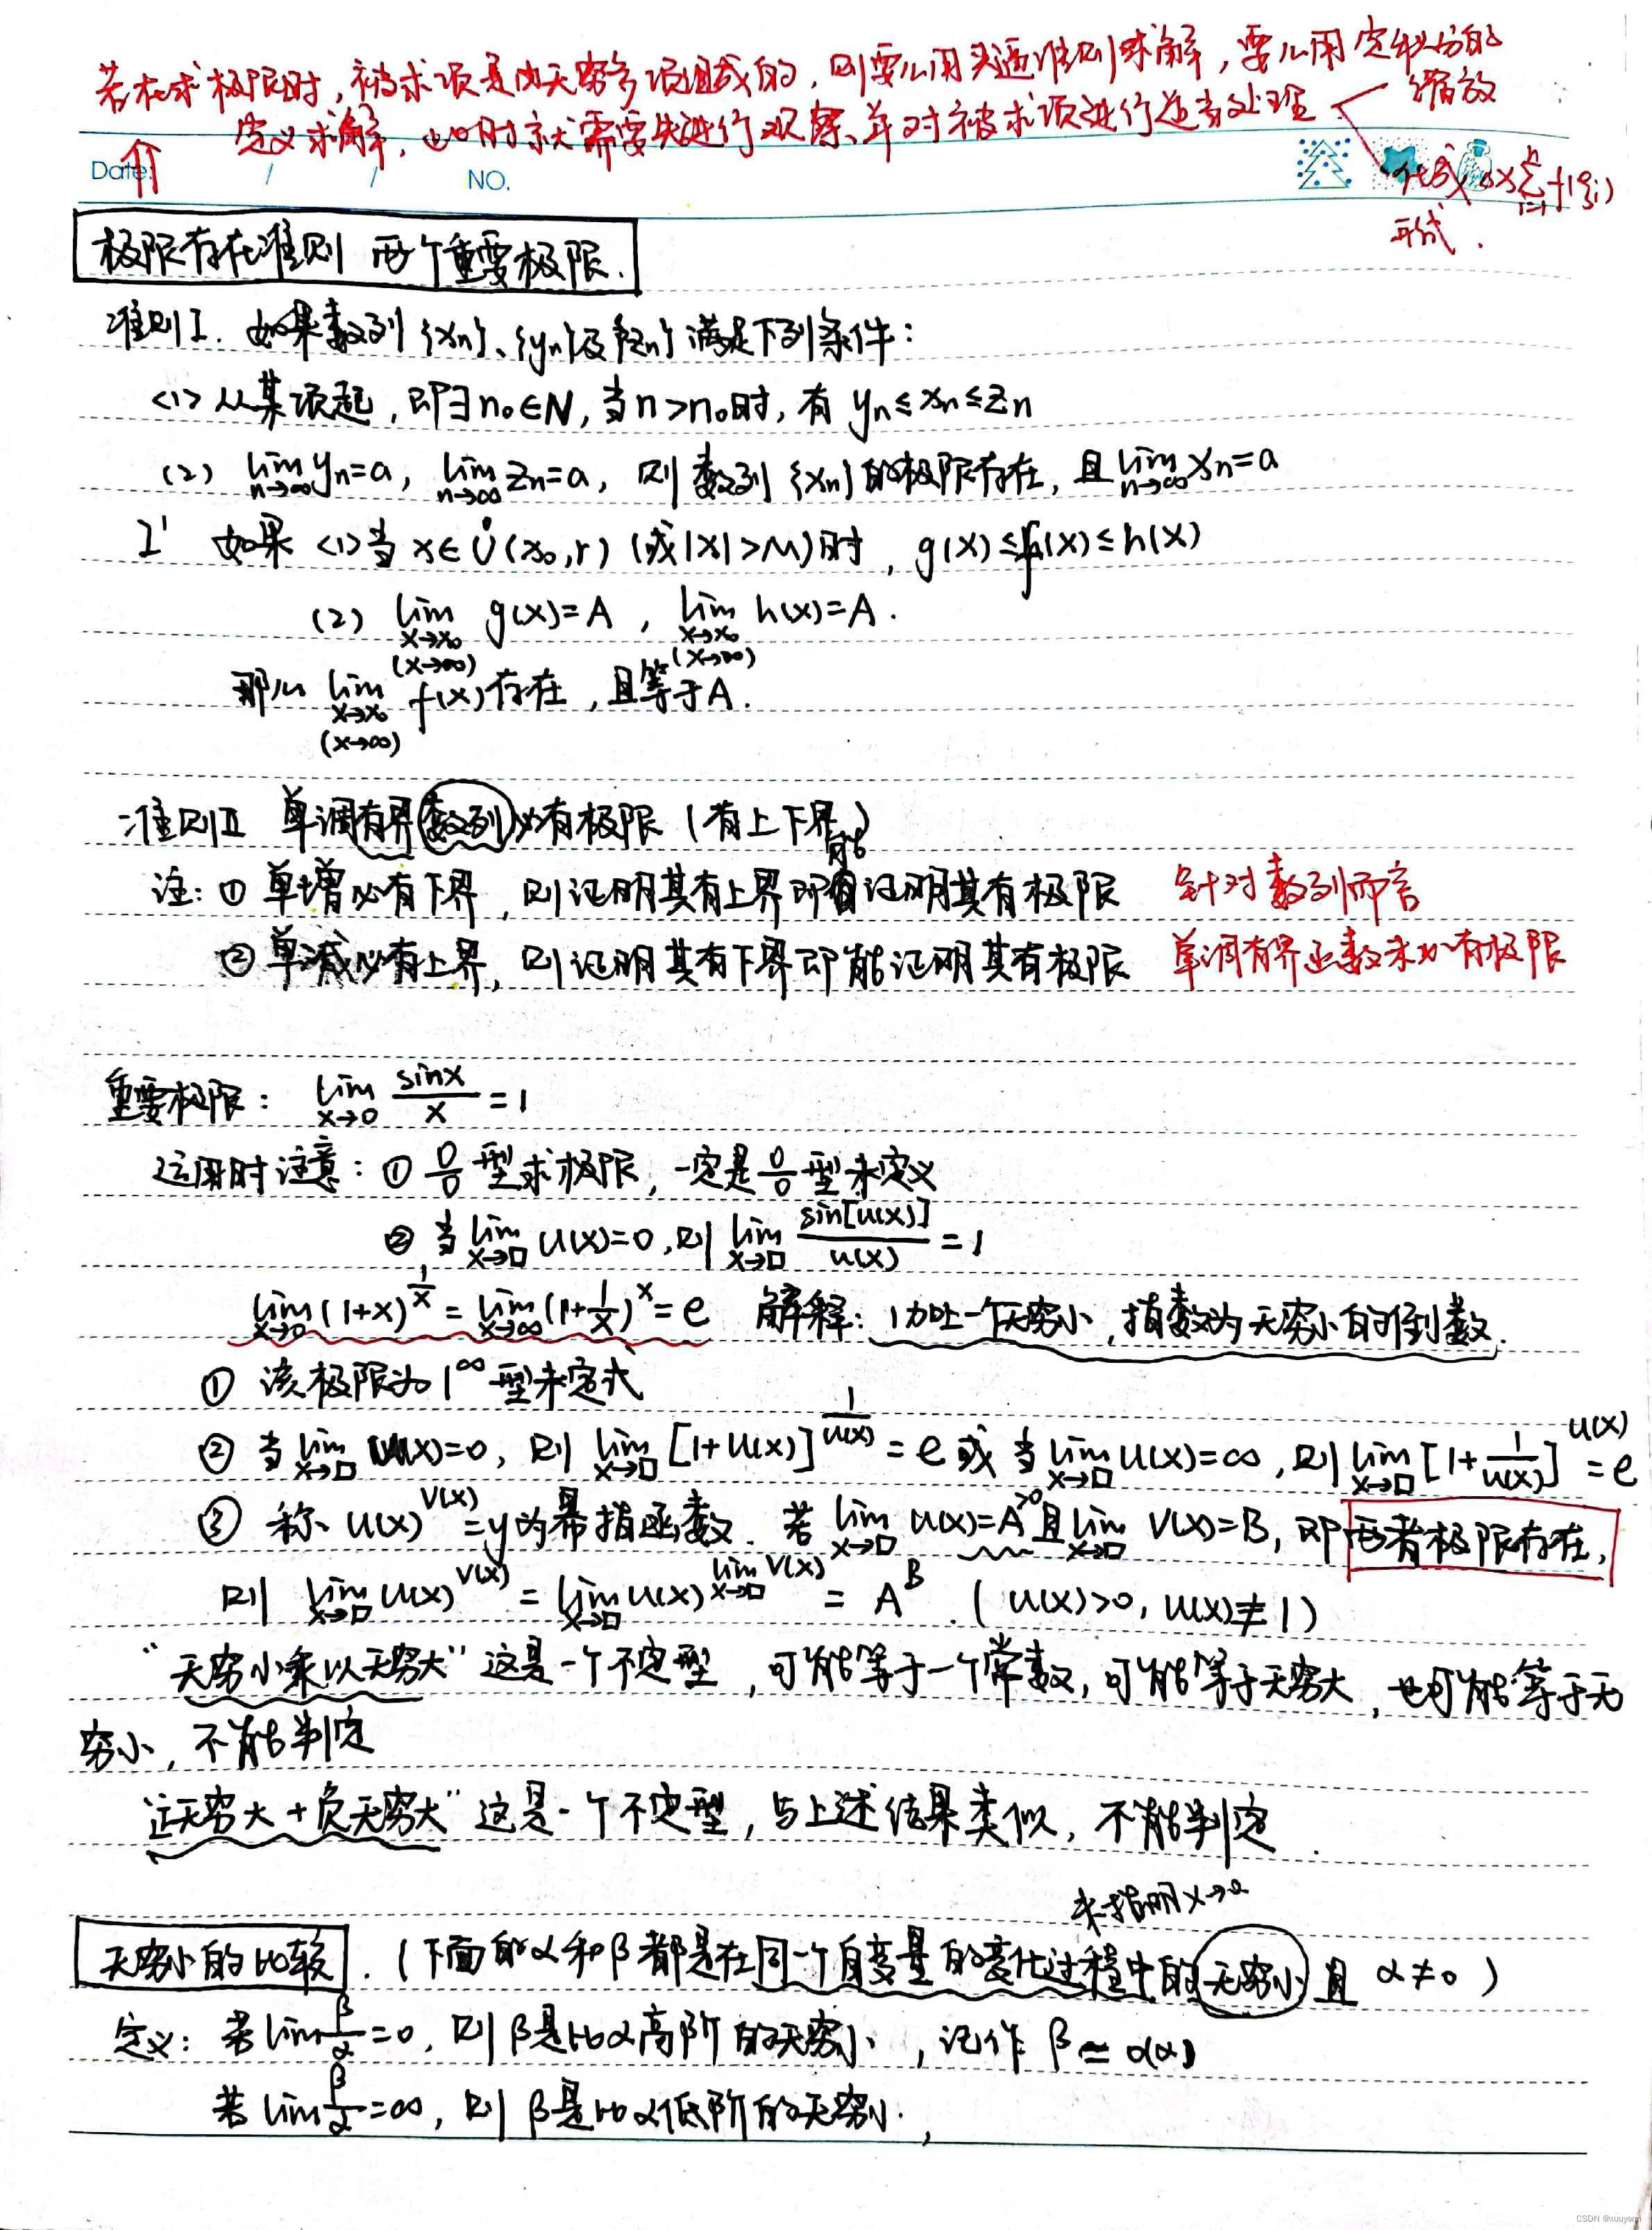 若在求极限时，被求项是由无穷多项组成的，则要么用夹逼准则求解，要么用定积分的
定义求解，此时就需要先进行观察、并对被求项进行适当处理
缩放
化成 Δx∑f(ξi)
i=1 n
形式.
Date: / / NO.
极限存在准则 两个重要极限.
准则I. 如果数列{xn}、{yn}及{zn}满足下列条件:
<1> 从某项起, 即∃n₀∈N, 当n>n₀时, 有 yn≤xn≤zn
(2) lim n→∞ yn=a, lim n→∞ zn=a, 则数列{xn}的极限存在, 且lim n→∞ xn=a
I' 如果 <1>当 x∈Ů(x₀,r) (或|x|>M)时, g(x)≤f(x)≤h(x)
(2) lim x→x₀ (x→∞) g(x)=A, lim x→x₀ (x→∞) h(x)=A.
那么 lim x→x₀ (x→∞) f(x)存在, 且等于A.
准则II 单调有界数列必有极限 (有上下界)
注: ① 单增必有下界, 则证明其有上界即能证明其有极限 针对数列而言
② 单减必有上界, 则证明其有下界即能证明其有极限 单调有界函数未必有极限
重要极限: lim x→0 sinx/x =1
运用时注意: ① 0/0 型求极限, 一定是 0/0 型未定义
② 当lim x→□ u(x)=0, 则 lim x→□ sin[u(x)]/u(x) =1
lim x→0 (1+x)^(1/x) = lim x→∞ (1+1/x)^x = e 解释: 1加上一个无穷小, 指数为无穷小的倒数.
① 该极限为1^∞型未定式
② 当lim x→□ u(x)=0, 则 lim x→□ [1+u(x)]^(1/u(x)) = e 或 当lim x→□ u(x)=∞, 则lim x→□ [1+1/u(x)]^u(x) = e
③ 称 u(x)^v(x) =y为幂指函数. 若 lim x→□ u(x)=A>0 且lim x→□ v(x)=B, 即两者极限存在,
则 lim x→□ u(x)^v(x) = lim x→□ u(x)^(lim x→□ v(x)) = A^B. (u(x)>0, u(x)≠1)
“无穷小乘以无穷大” 这是一个不定型, 可能等于一个常数, 可能等于无穷大, 也可能等于无
穷小, 不能判定
“正无穷大+负无穷大” 这是一个不定型, 与上述结果类似, 不能判定.
未指明x→a
无穷小的比较. (下面的α和β都是在同一个自变量的变化过程中的无穷小 且 α≠0)
定义: 若lim β/α =0, 则β是比α高阶的无穷小, 记作 β = o(α)
若lim β/α =∞, 则β是比α低阶的无穷小.,
CSDN @xuuyann